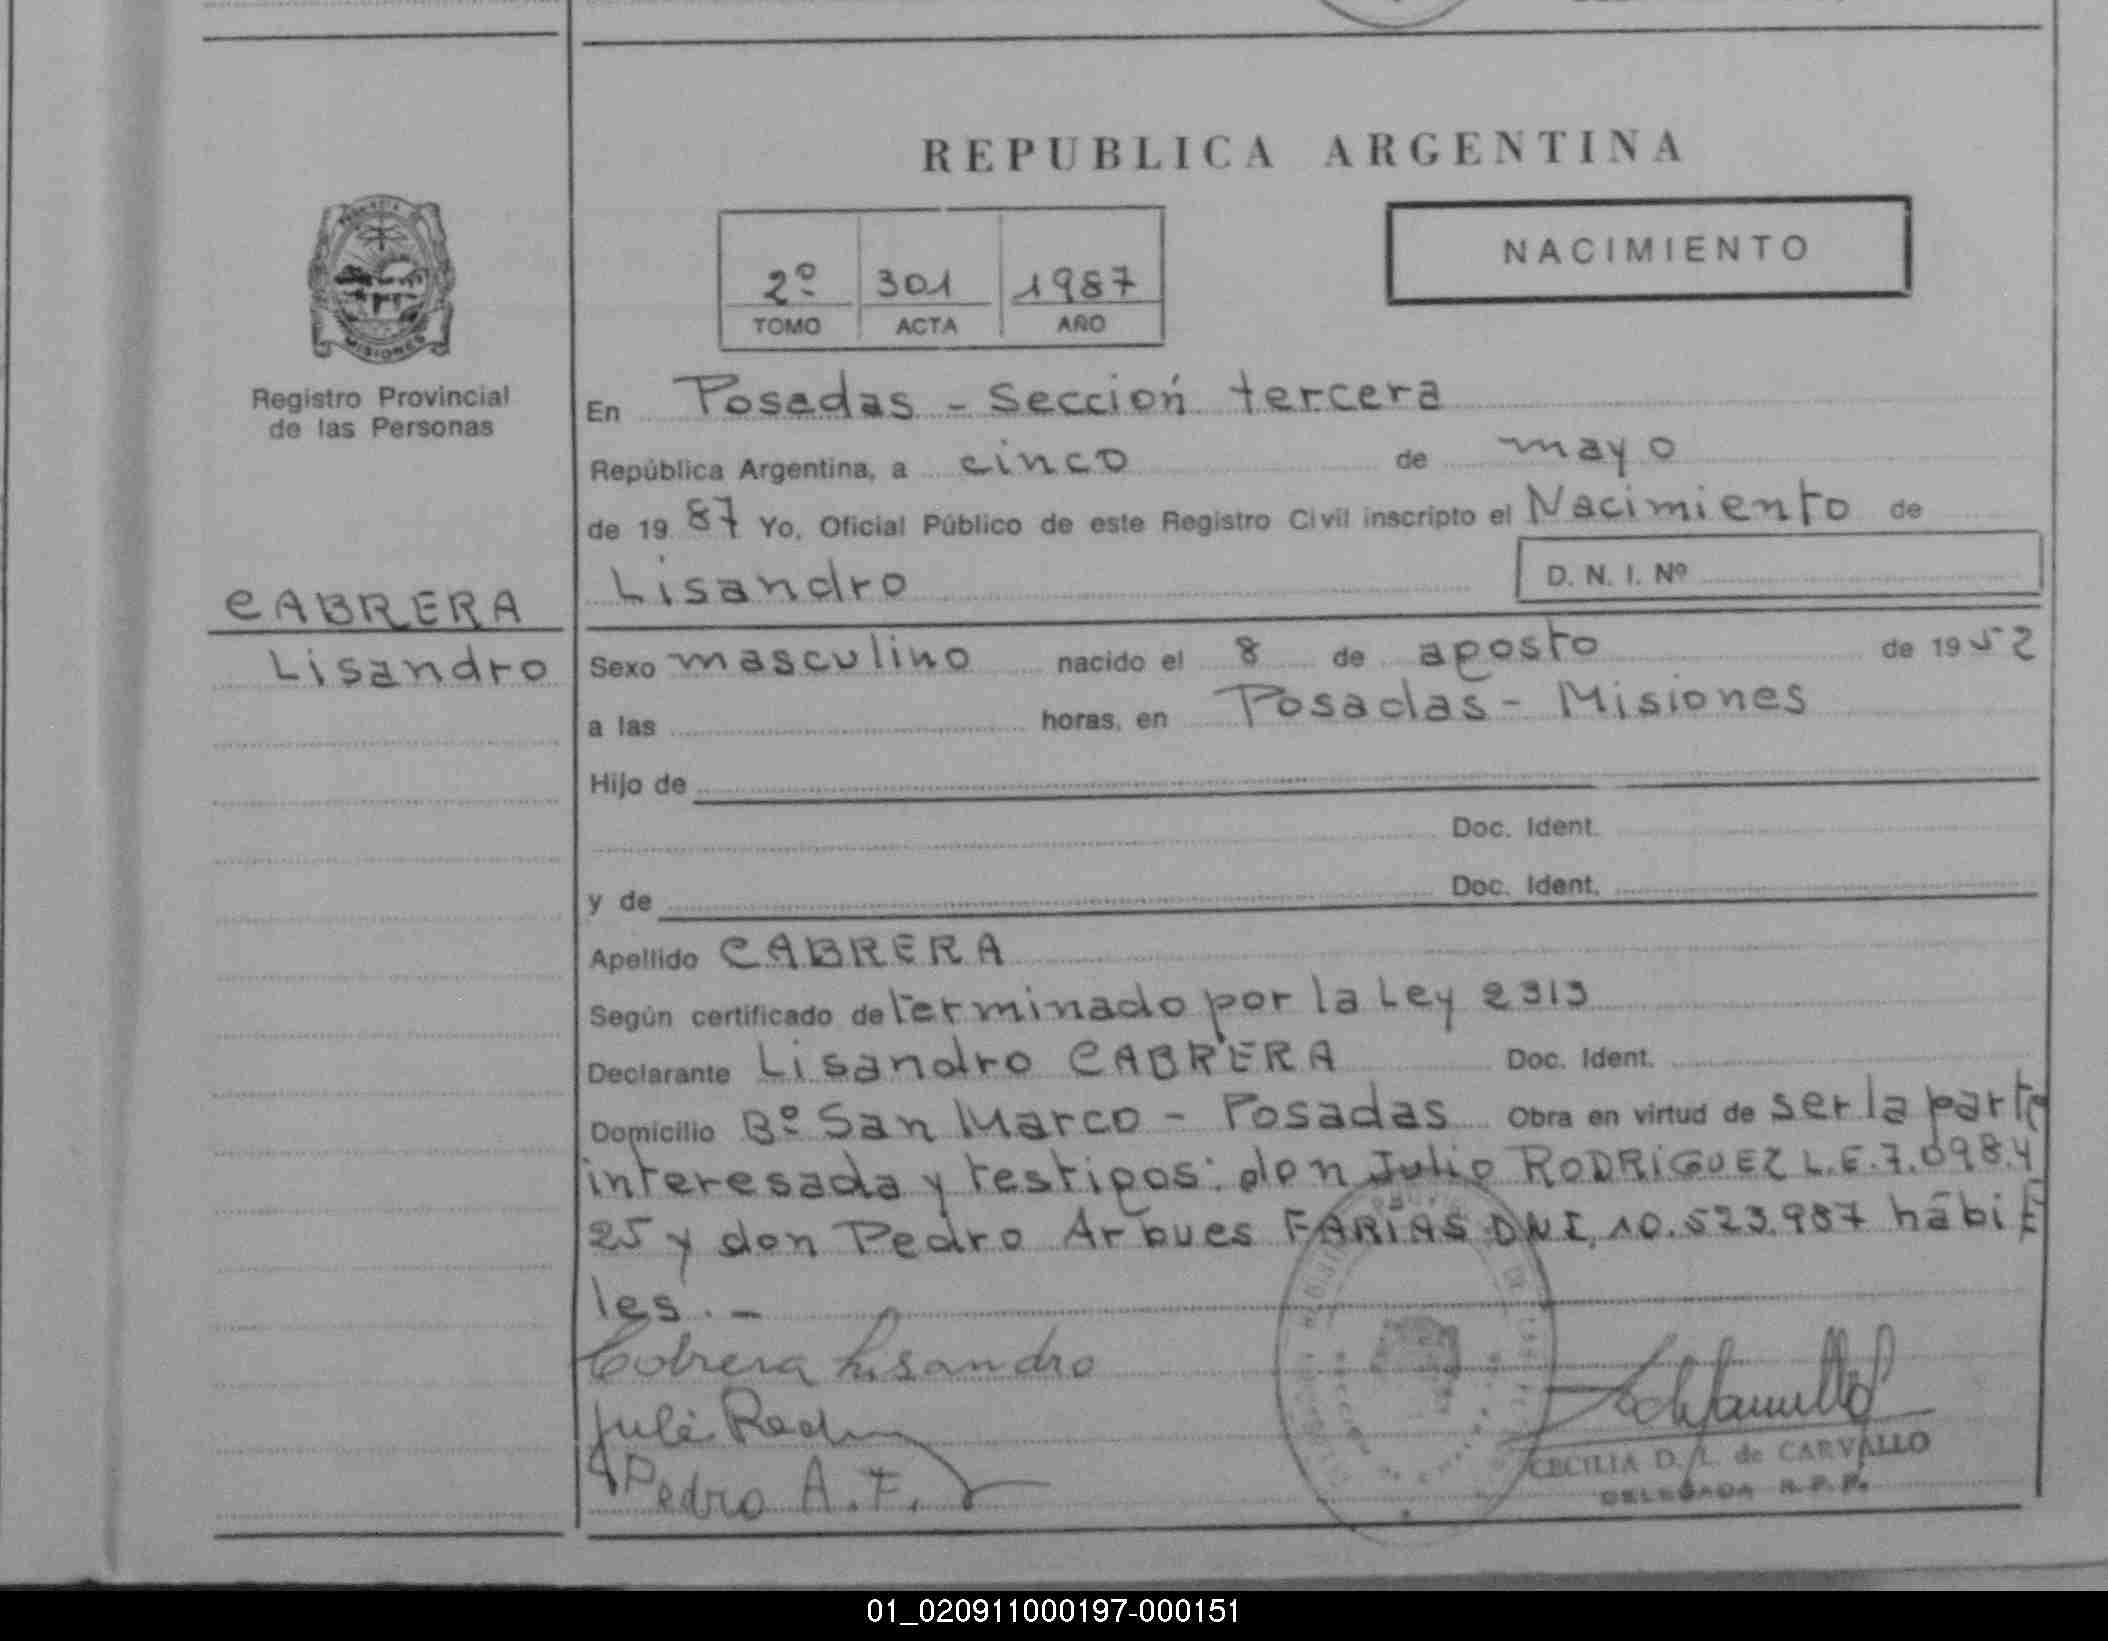 REPUBLICA ARGENTINA
NACIMIENTO
2º 301 1987
TOMO ACTA AÑO
MISIONES
Registro Provincial
de las Personas
CABRERA
Lisandro
En Posadas - Sección tercera
República Argentina, a cinco de mayo
de 1987 Yo, Oficial Público de este Registro Civil inscripto el Nacimiento de
Lisandro D. N. I. Nº
Sexo masculino nacido el 8 de agosto de 1952
a las horas, en Posadas - Misiones
Hijo de
Doc. Ident.
y de Doc. Ident.
Apellido CABRERA
Según certificado determinado por la Ley 2313
Declarante Lisandro CABRERA Doc. Ident.
Domicilio Bº San Marco - Posadas Obra en virtud de ser la parte
interesada y testigos: don Julio RODRIGUEZ L.E. 7.098.4
25 y don Pedro Arbues FARIAS DNI. 10.523.987 hábi
les. -
Cabrera Lisandro
Pedro A. F.
CECILIA D. L. de CARVALLO
DELEGADA R. P. P.
01_020911000197-000151